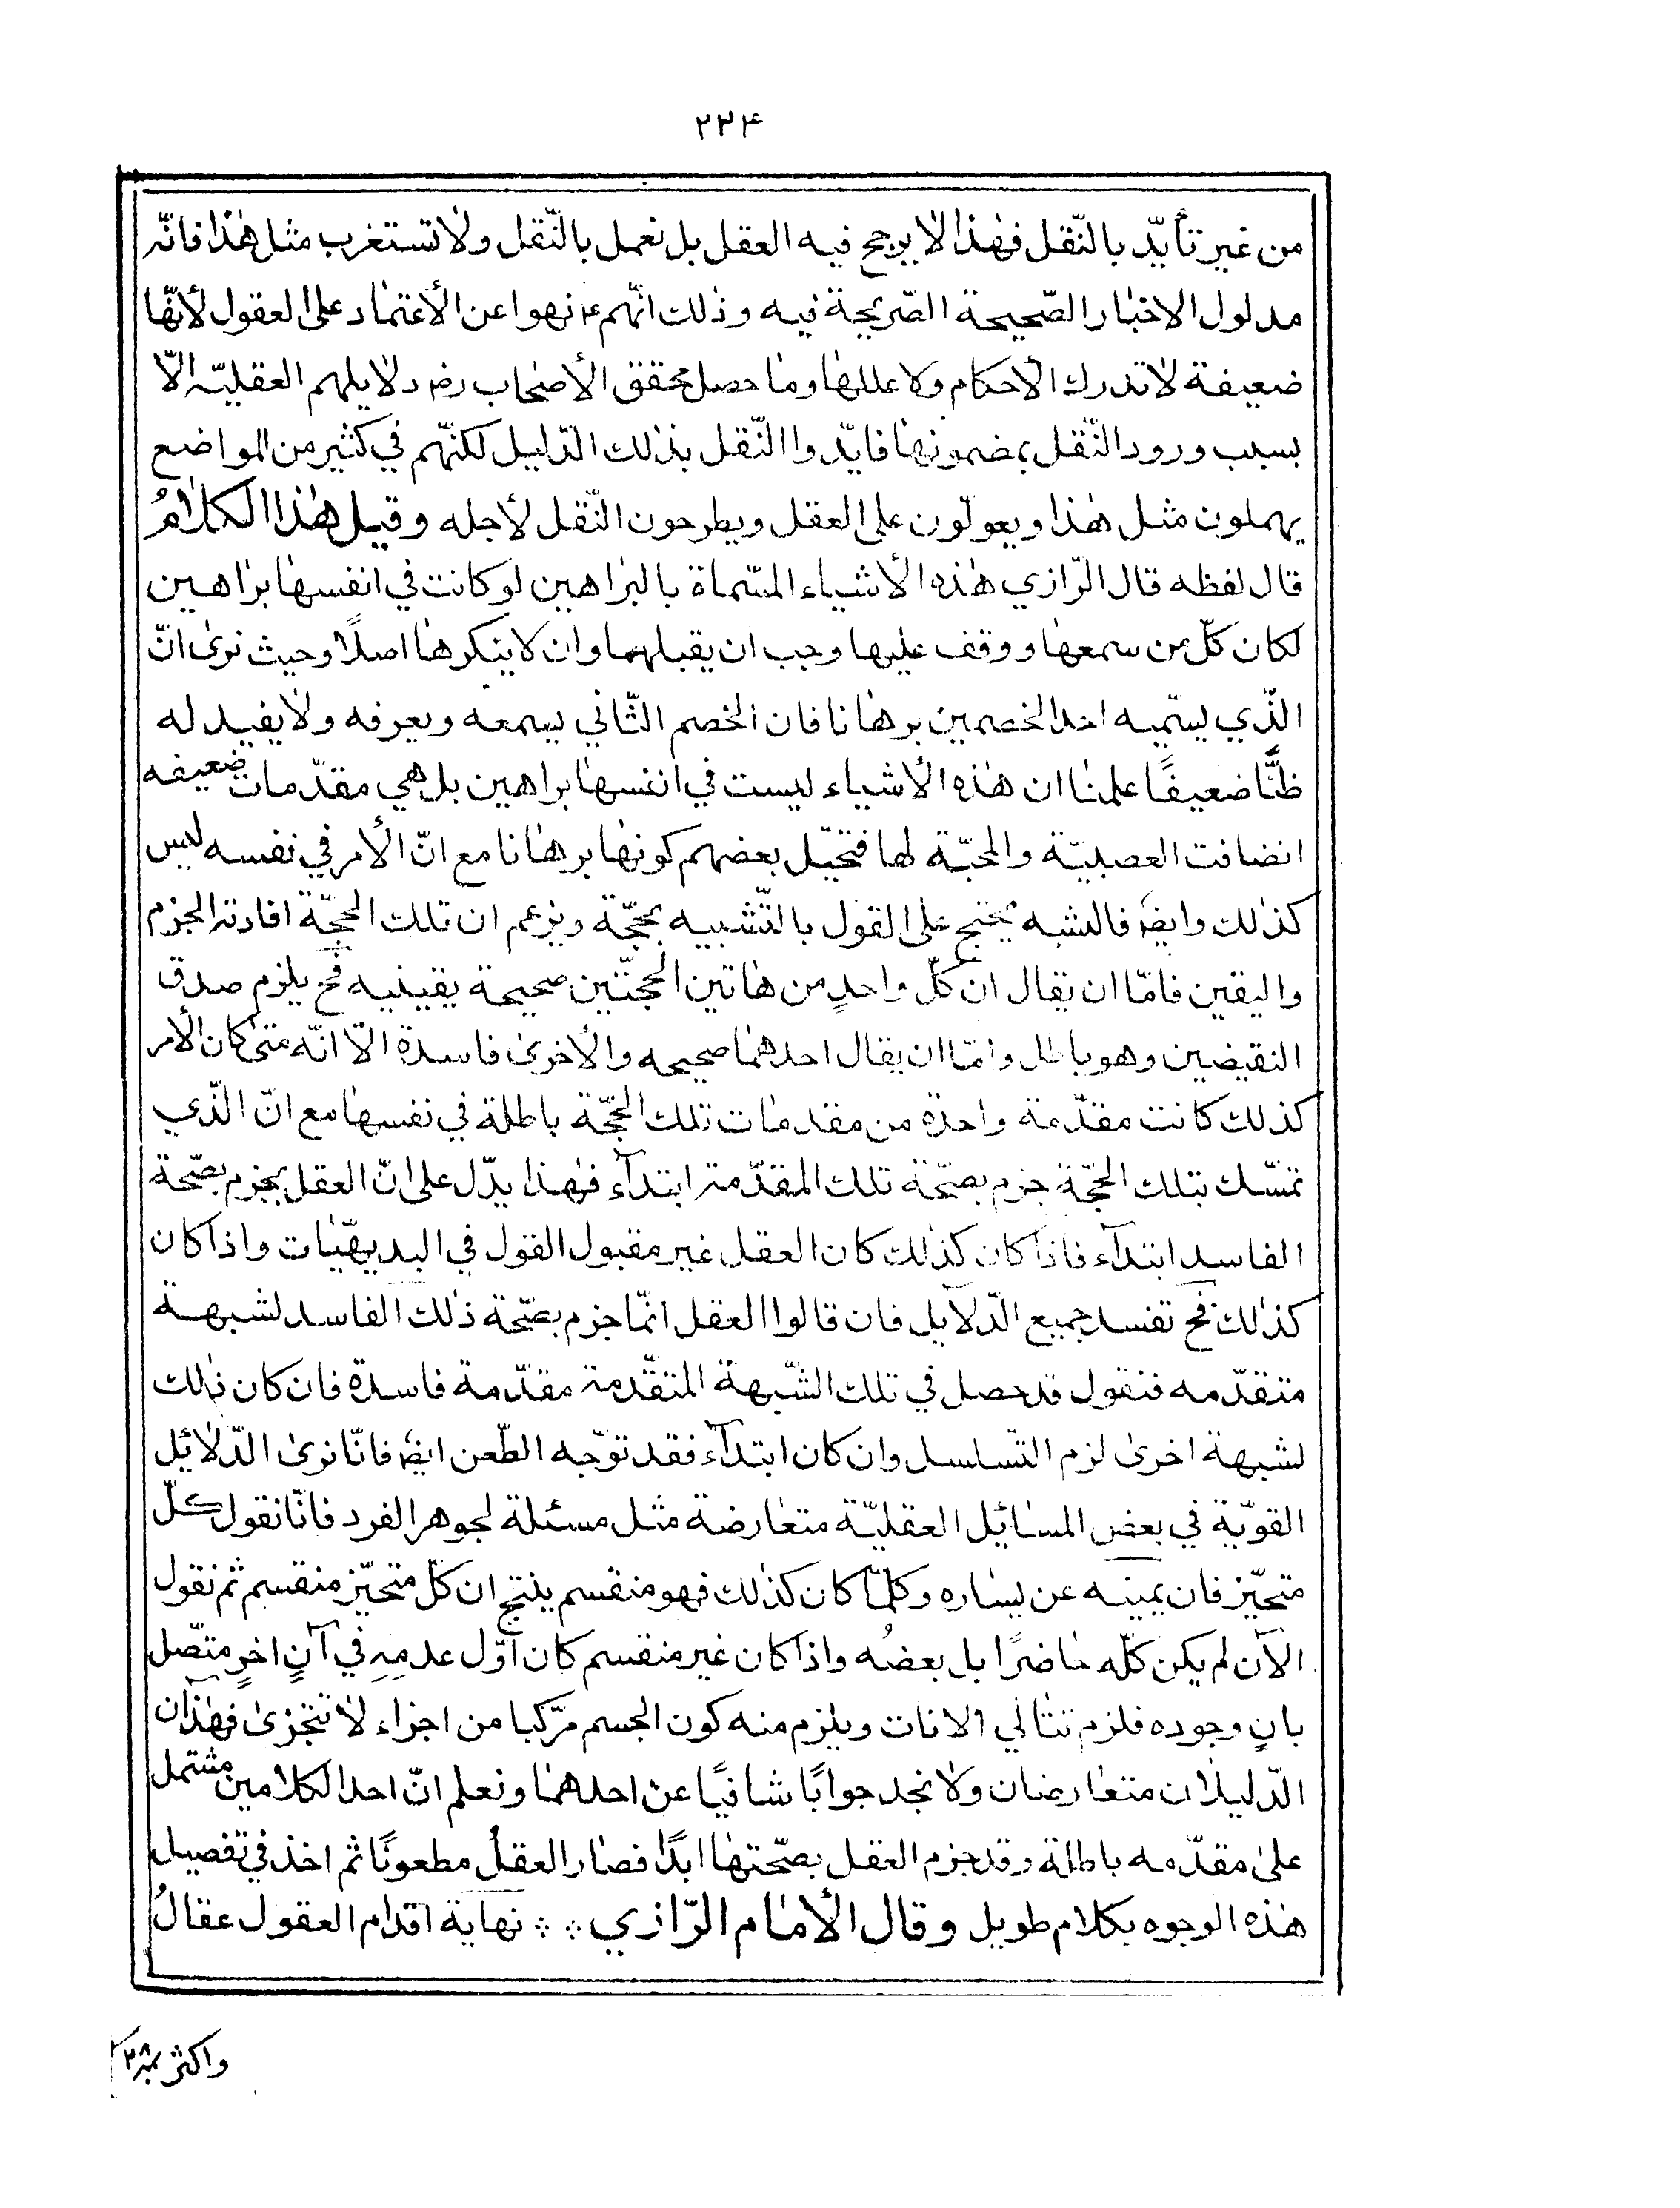 ٢٢٤
من غير تأيّد بالنّقل فهٰذا لا يرجح فيه العقل بل نعمل بالنّقل ولا تستغرب مثل هٰذا فانّه
مدلول الاخبار الصّحيحة الصّريحة فيه وذلك انّهم ع نهوا عن الأعتماد على العقول لأنّها
ضعيفة لا تدرك الأحكام ولا عللها وما حصل محقق الأصحاب رض دلايلهم العقليّه الّا
بسبب ورود النّقل بمضمونها فايّدوا النّقل بذلك الدّليل لكنّهم في كثير من المواضع
يهملون مثل هٰذا ويعولون على العقل ويطرحون النّقل لأجله وقيل هٰذا الكلامُ
قال لفظه قال الرّازي هٰذه الأشياء المسّماة بالبراهين لو كانت في انفسها براهين
لكان كلّ من سمعها ووقف عليها وجب ان يقبلها وان لا ينكرها اصلًا وحيث نرىٰ انّ
الذّي يسمّيه احد الخصمين برهانا فان الخصم الثّاني يسمعه ويعرفه ولا يفيد له
ظنًّا ضعيفًا علمنا ان هٰذه الأشياء ليست في انفسها براهين بل هي مقدّمات ضعيفه
انضافت العصبيّة والمحبّة لها فتخيّل بعضهم كونها برهانا مع انّ الأمر في نفسه ليس
كذلك وايض فالمشبه يحتج على القول بالتّشبيه بحجّة ويزعم ان تلك الحجّة افادته الجزم
واليقين فامّا ان يقال ان كلّ واحدٍ من هاتين الحجّتين صحيحة يقينيه فح يلزم صدق
النقيضين وهو باطل وامّا ان يقال احدهما صحيحه والأخرىٰ فاسدة الّا انّه متىٰ كان الأمر
كذلك كانت مقدّمة واحدة من مقدمات تلك الحجّة باطلة في نفسها مع انّ الذّي
تمسّك بتلك الحجّة جزم بصحّة تلك المقدّمة ابتدآء فهٰذا يدّل على انّ العقل يجزم بصّحة
الفاسد ابتدآء فاذا كان كذلك كان العقل غير مقبول القول في البديهيّات واذا كان
كذلك فح تفسد جميع الدّلايل فان قالوا العقل انّما جزم بصّحة ذلك الفاسد لشبهة
متقدّمه فنقول قد حصل في تلك الشّبهة المتقّدمة مقدّمة فاسدة فان كان ذلك
لشبهة اخرىٰ لزم التّسلسل وان كان ابتدآء فقد توّجه الطّعن ايض فانّا نرىٰ الدّلائل
القوّية في بعض المسائيل العقليّة متعارضة مثل مسئلة لجوهر الفرد فانّا نقول كلّ
متحيّز فان يمينه عن يساره وكلمّا كان كذلك فهو منقسم ينتج ان كلّ متحيّز منقسم ثم نقول
الآن لم يكن كلّه حاضرًا بل بعضُه واذا كان غير منقسم كان اوّل عدمِهِ في آنٍ اخرٍ متصّل
بانٍ وجوده فلزم تتالي الانات ويلزم منه كون الجسم مرّكبا من اجزاء لا تتجزىٰ فهٰذان
الدّليلان متعارضان ولا نجد جوابًا شافيًا عن احدهما ونعلم انّ احد الكلامين مشتمل
علىٰ مقدّمه باطلة وقد جزم العقل بصّحتها ابدًا فصار العقلُ مطعونًا ثم اخذ في تفصيل
هٰذه الوجوه بكلام طويل وقال الأمام الرّازي ∴ ∴ نهاية اقدام العقول عقالُ
واكثر نمبر ٢٨